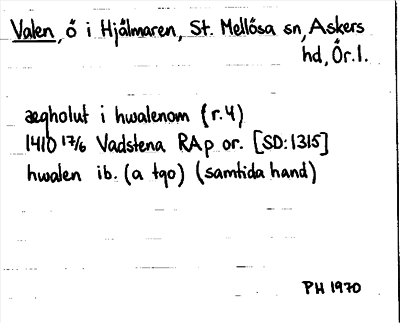 Valen, ö i Hjälmaren, St. Mellösa sn, Askers
hd, Ör. l.
ægholut i hwalenom (r. 4)
1410 17/6 Vadstena RAp or. [SD: 1315]
hwalen ib. (a tgo) (samtida hand)
PH 1970